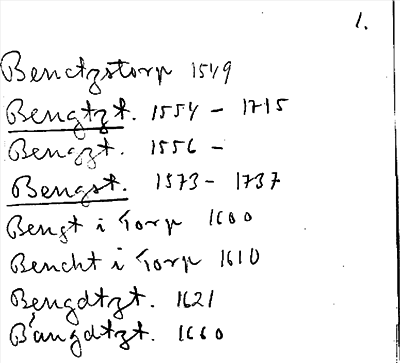 1.
Benctzstorp 1549
Bengtzt. 1554 - 1715
Bengzt. 1556 -
Bengst. 1573 - 1737
Bengt i Torp 1600
Bencht i Torp 1610
Bengdtzt. 1621
Bängdtzt. 1660